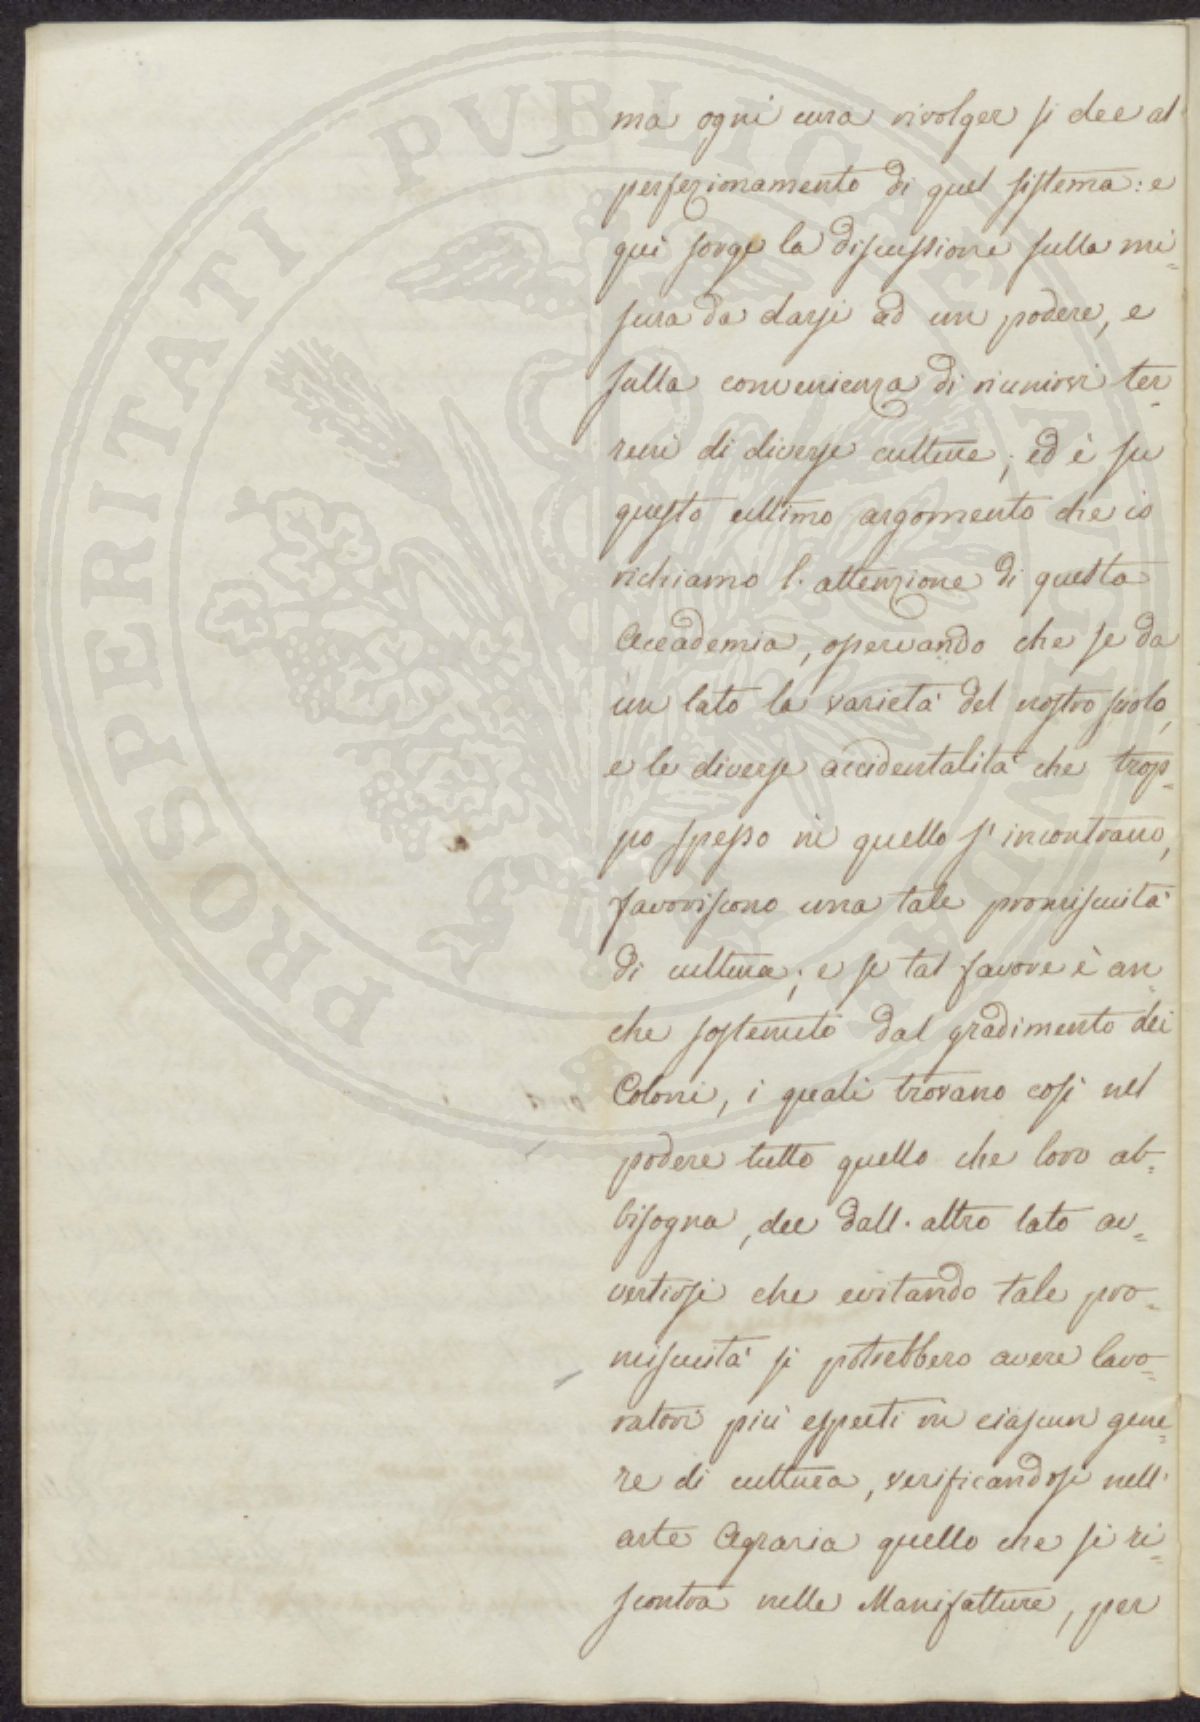 ma ogni cura rivolger si dee al
perfezionamento di quel sistema: e
quì sorge la discussione sulla mi=
sura da darsi ad un podere, e
sulla convenienza di riunirvi ter=
reni di diverse culture; ed è su
questo ultimo argomento che io
richiamo l'attenzione di questa
Accademia, osservando che se da
un lato la varietà del nostro suolo,
e le diverse accidentalità che trop=
po spesso in quello s'incontrano,
favoriscono una tale promiscuità
di cultura; e se tal favore è an
che sostenuto dal gradimento dei
Coloni, i quali trovano così nel
podere tutto quello che loro ab=
bisogna, dee dall'altro lato av=
vertirsi che evitando tale pro=
miscuità si potrebbero avere lavo=
ratori più esperti in ciascun gene=
re di cultura, verificandosi nell'
arte Agraria quello che si ri=
scontra nelle Manifatture, per
PROSPERITATI PVBLICAE AVGENDAE